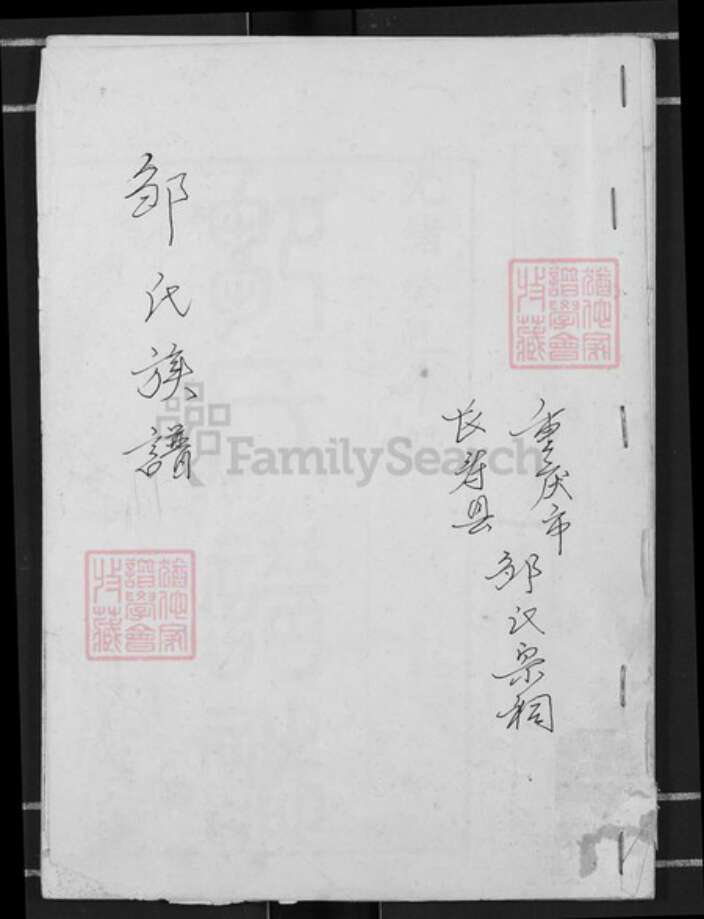 重庆市
长寿县
邹氏宗祠
邹氏族譜
猶他家
譜學會
收藏
猶他家
譜學會
收藏
FamilySearch